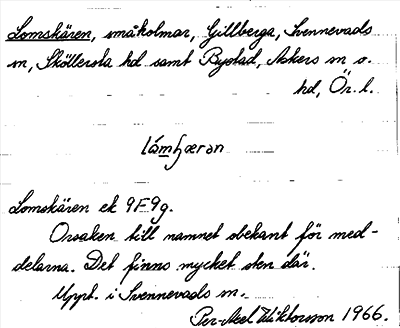 Lomskären, småholmar, Gillberga, Svennevads
sn, Sköllersta hd samt Bystad, Askers sn o.
hd, Ör. l.
låmʃæran
Lomskären ek 9F9g.
Orsaken till namnet obekant för med-
delarna. Det finns mycket sten där.
Uppt. i Svennevads sn.
Per-Axel Wiktorsson 1966.